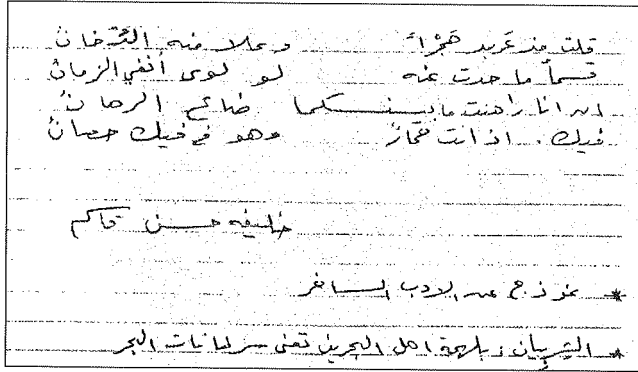 قلت مذ عربد هَجْراً وعلا منه الدُّخانْ
قسماً ما حدت عنه لو لوى أنفي الزمانْ
انا راهنت ضائع الرهانْ
فيك. اذ انت وهو في فيك حصانْ
خليفه حسن قاسم
* نموذج من الادب الساخر
* الشريبان: بلهجة اهل البحرين تعني سرطانات البحر